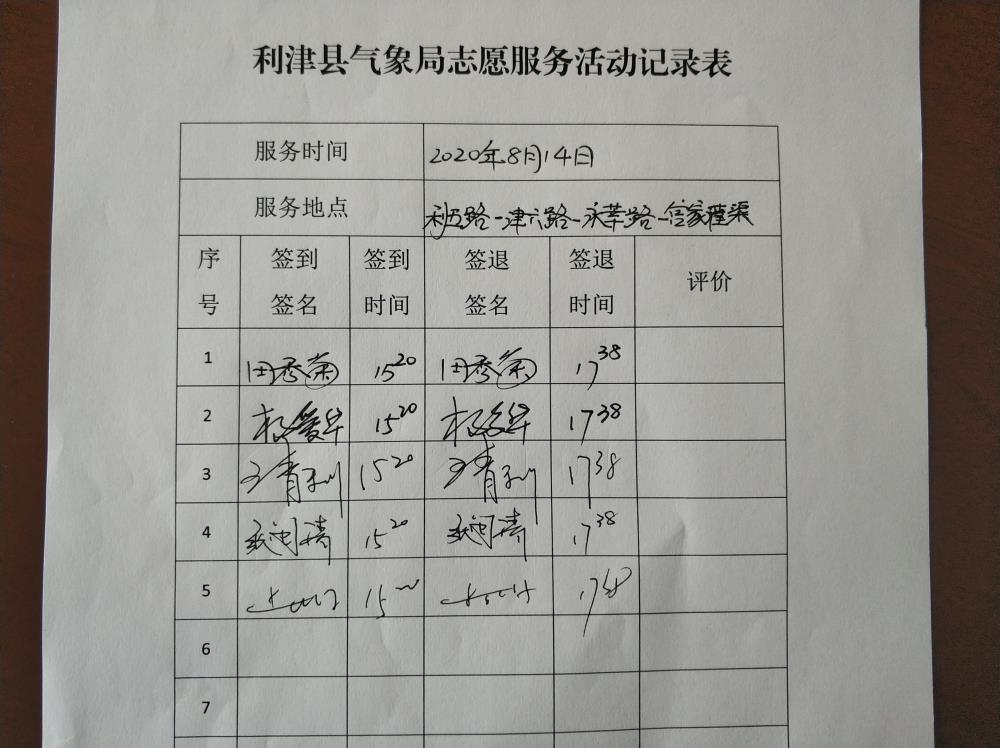 利津县气象局志愿服务活动记录表
服务时间 2020年8月14日
服务地点 利五路-津六路-永莘路-管家灌渠
序号 签到签名 签到时间 签退签名 签退时间 评价
1 田秀菊 15 20 田秀菊 17 38
2 杨爱华 15 20 杨爱华 17 38
3 15 20 17 38
4 15 20 17 38
5 15
6
7